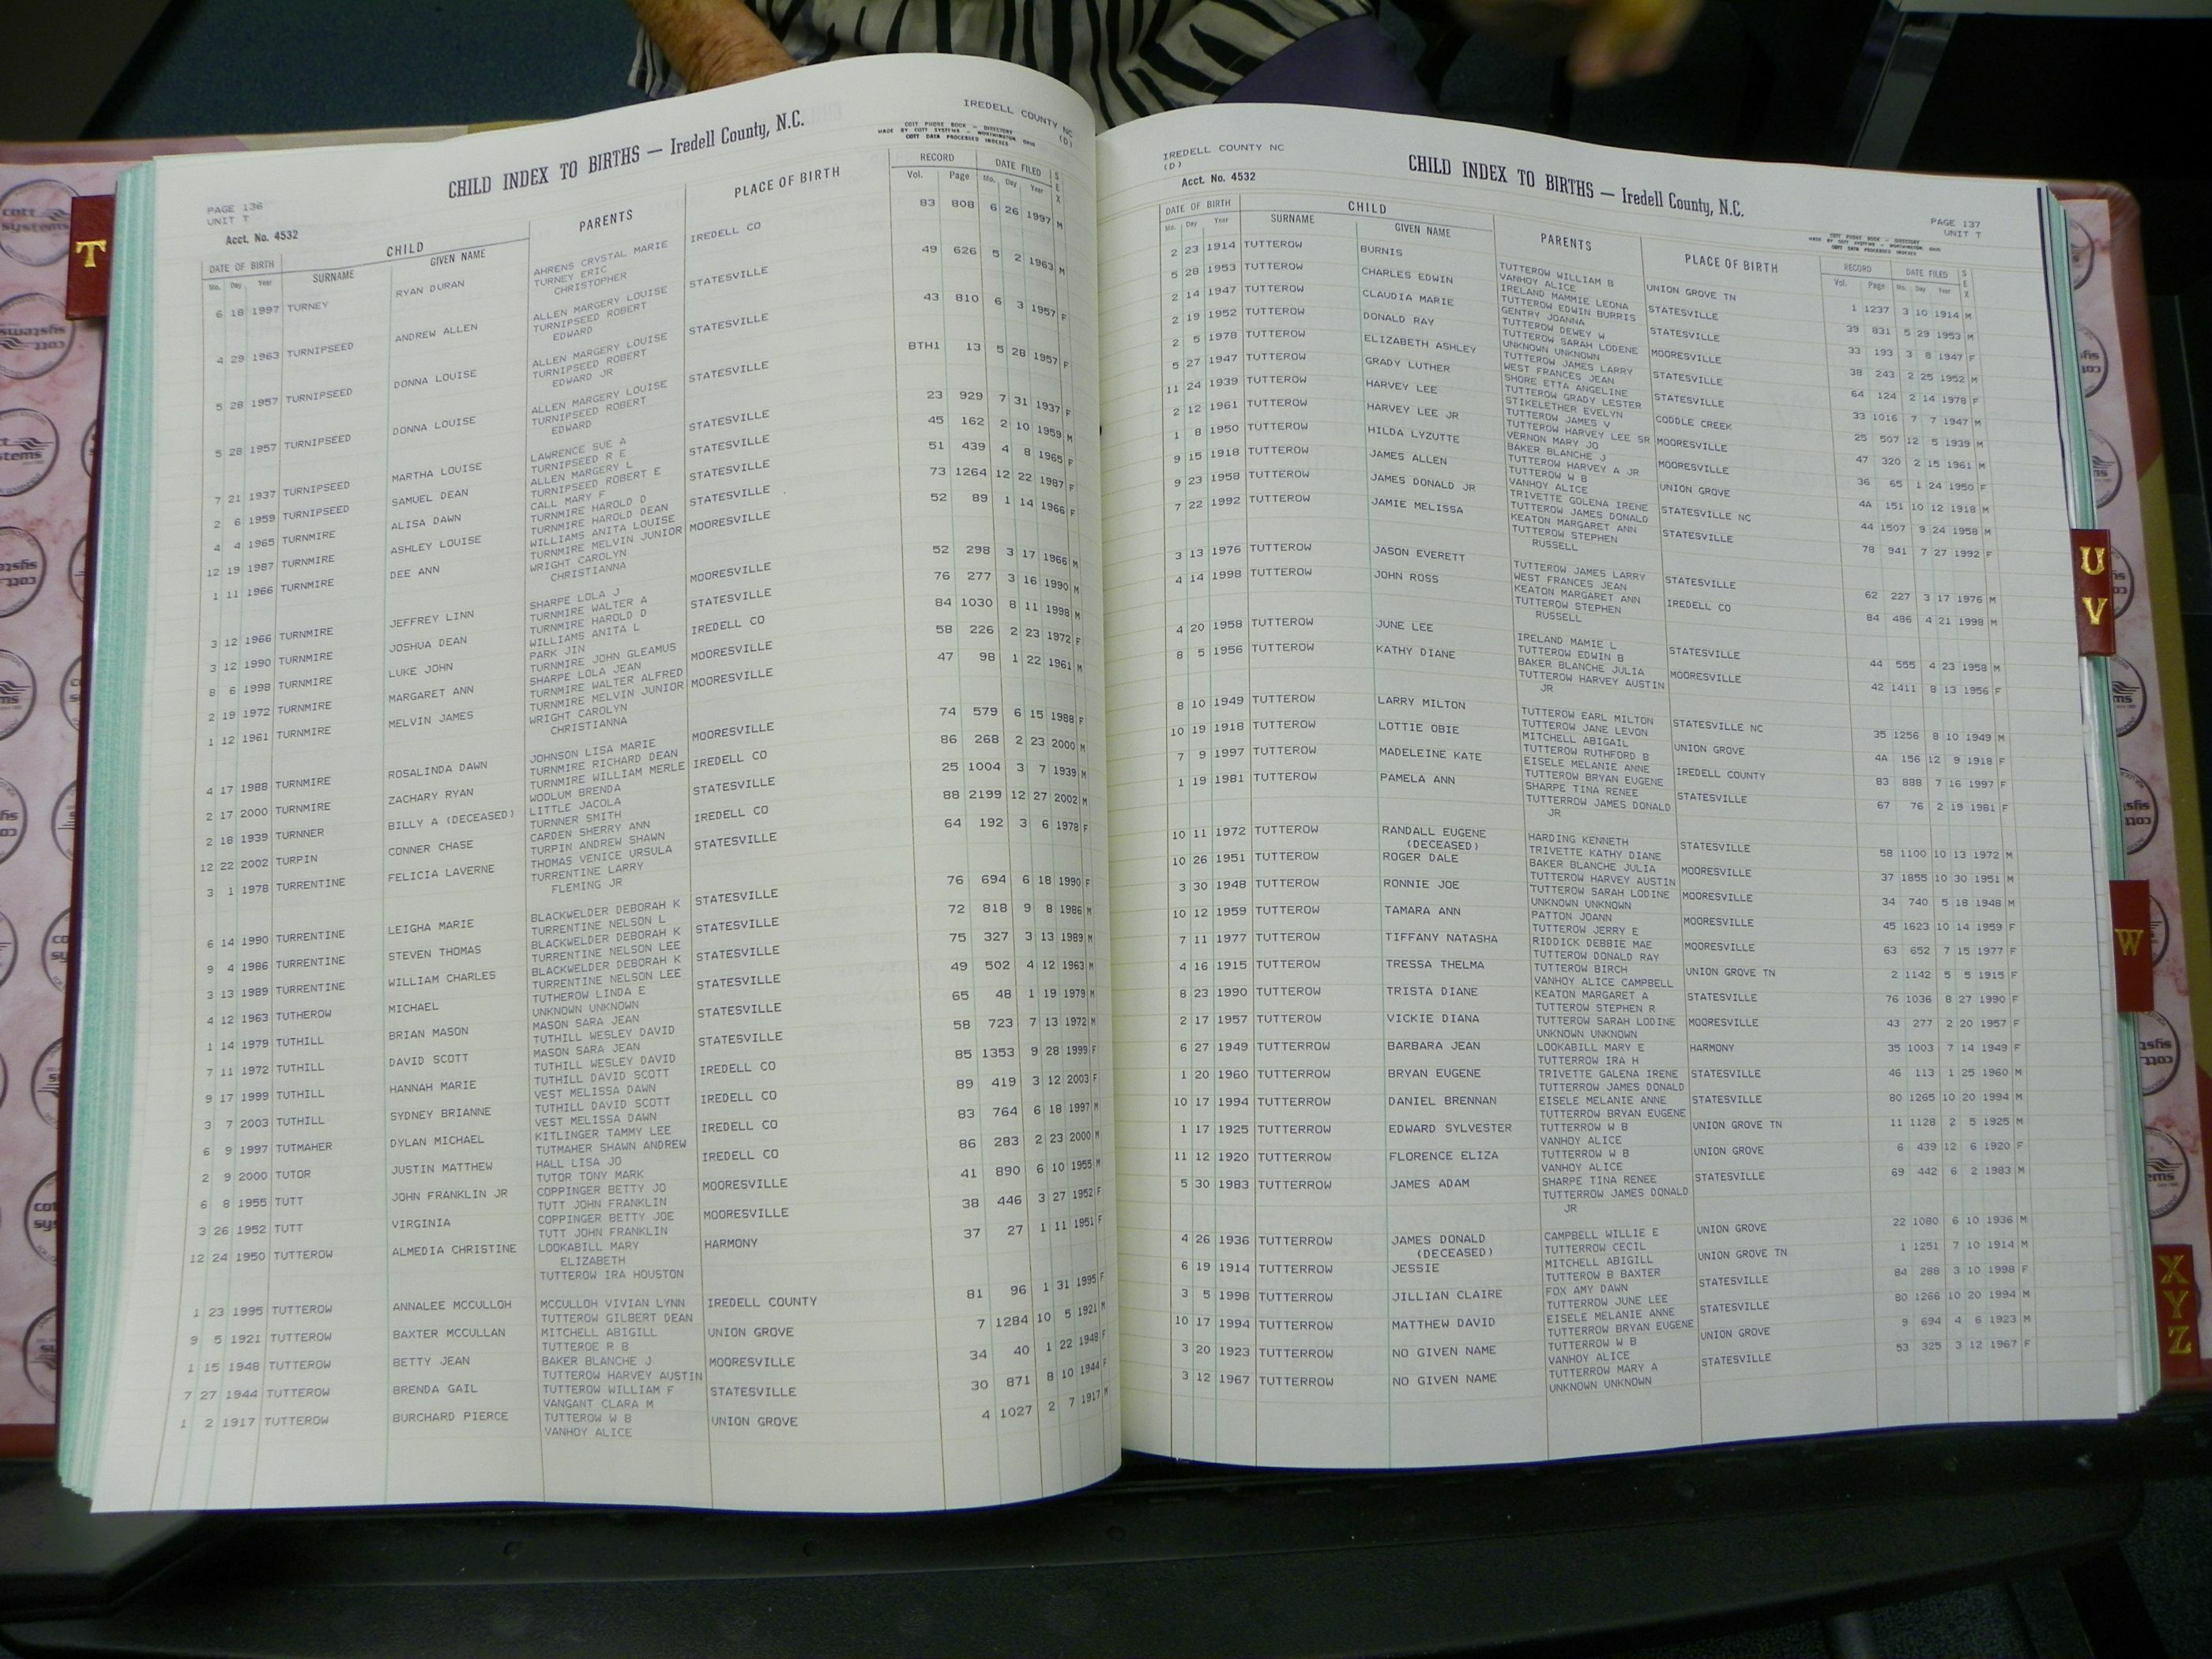 PAGE 136
UNIT T
Acct. No. 4532
CHILD INDEX TO BIRTHS — Iredell County, N.C.
IREDELL COUNTY NC
(D)
COTT PHONE BOOK — DIRECTORY
MADE BY COTT SYSTEMS — WORTHINGTON, OHIO
COTT DATA PROCESSED INDEXES
DATE OF BIRTH CHILD PARENTS PLACE OF BIRTH RECORD DATE FILED SEX
Mo. Day Year SURNAME GIVEN NAME Vol. Page Mo. Day Year
6 18 1997 TURNEY RYAN DURAN AHRENS CRYSTAL MARIE IREDELL CO 83 808 6 26 1997 M
TURNEY ERIC
CHRISTOPHER
4 29 1963 TURNIPSEED ANDREW ALLEN ALLEN MARGERY LOUISE STATESVILLE 49 626 5 2 1963 M
TURNIPSEED ROBERT
EDWARD
5 28 1957 TURNIPSEED DONNA LOUISE ALLEN MARGERY LOUISE STATESVILLE 43 810 6 3 1957 F
TURNIPSEED ROBERT
EDWARD JR
5 28 1957 TURNIPSEED DONNA LOUISE ALLEN MARGERY LOUISE STATESVILLE BTH1 13 5 28 1957 F
TURNIPSEED ROBERT
EDWARD
7 21 1937 TURNIPSEED MARTHA LOUISE LAWRENCE SUE A STATESVILLE 23 929 7 31 1937 F
TURNIPSEED R E
2 6 1959 TURNIPSEED SAMUEL DEAN ALLEN MARGERY L STATESVILLE 45 162 2 10 1959 M
TURNIPSEED ROBERT E
4 4 1965 TURNMIRE ALISA DAWN CALL MARY F STATESVILLE 51 439 4 8 1965 F
TURNMIRE HAROLD D
12 19 1987 TURNMIRE ASHLEY LOUISE TURNMIRE HAROLD DEAN STATESVILLE 73 1264 12 22 1987 F
WILLIAMS ANITA LOUISE
1 11 1966 TURNMIRE DEE ANN TURNMIRE MELVIN JUNIOR MOORESVILLE 52 89 1 14 1966 F
WRIGHT CAROLYN
CHRISTIANNA
3 12 1966 TURNMIRE JEFFREY LINN SHARPE LOLA J MOORESVILLE 52 298 3 17 1966 M
TURNMIRE WALTER A
3 12 1990 TURNMIRE JOSHUA DEAN TURNMIRE HAROLD D STATESVILLE 76 277 3 16 1990 M
WILLIAMS ANITA L
8 6 1998 TURNMIRE LUKE JOHN PARK JIN IREDELL CO 84 1030 8 11 1998 M
TURNMIRE JOHN GLEAMUS
2 19 1972 TURNMIRE MARGARET ANN SHARPE LOLA JEAN MOORESVILLE 58 226 2 23 1972 F
TURNMIRE WALTER ALFRED
1 12 1961 TURNMIRE MELVIN JAMES TURNMIRE MELVIN JUNIOR MOORESVILLE 47 98 1 22 1961 M
WRIGHT CAROLYN
CHRISTIANNA
4 17 1988 TURNMIRE ROSALINDA DAWN JOHNSON LISA MARIE MOORESVILLE 74 579 6 15 1988 F
TURNMIRE RICHARD DEAN
2 17 2000 TURNMIRE ZACHARY RYAN TURNMIRE WILLIAM MERLE IREDELL CO 86 268 2 23 2000 M
WOOLUM BRENDA
2 18 1939 TURNNER BILLY A (DECEASED) LITTLE JACOLA STATESVILLE 25 1004 3 7 1939 M
TURNNER SMITH
12 22 2002 TURPIN CONNER CHASE CARDEN SHERRY ANN IREDELL CO 88 2199 12 27 2002 M
TURPIN ANDREW SHAWN
3 1 1978 TURRENTINE FELICIA LAVERNE THOMAS VENICE URSULA STATESVILLE 64 192 3 6 1978 F
TURRENTINE LARRY
FLEMING JR
6 14 1990 TURRENTINE LEIGHA MARIE BLACKWELDER DEBORAH K STATESVILLE 76 694 6 18 1990 F
TURRENTINE NELSON L
9 4 1986 TURRENTINE STEVEN THOMAS BLACKWELDER DEBORAH K STATESVILLE 72 818 9 8 1986 M
TURRENTINE NELSON LEE
3 13 1989 TURRENTINE WILLIAM CHARLES BLACKWELDER DEBORAH K STATESVILLE 75 327 3 13 1989 M
TURRENTINE NELSON LEE
4 12 1963 TUTHEROW MICHAEL TUTHEROW LINDA E STATESVILLE 49 502 4 12 1963 M
UNKNOWN UNKNOWN
1 14 1979 TUTHILL BRIAN MASON MASON SARA JEAN STATESVILLE 65 48 1 19 1979 M
TUTHILL WESLEY DAVID
7 11 1972 TUTHILL DAVID SCOTT MASON SARA JEAN STATESVILLE 58 723 7 13 1972 M
TUTHILL WESLEY DAVID
9 17 1999 TUTHILL HANNAH MARIE TUTHILL DAVID SCOTT IREDELL CO 85 1353 9 28 1999 F
VEST MELISSA DAWN
3 7 2003 TUTHILL SYDNEY BRIANNE TUTHILL DAVID SCOTT IREDELL CO 89 419 3 12 2003 F
VEST MELISSA DAWN
6 9 1997 TUTMAHER DYLAN MICHAEL KITLINGER TAMMY LEE IREDELL CO 83 764 6 18 1997 M
TUTMAHER SHAWN ANDREW
2 9 2000 TUTOR JUSTIN MATTHEW HALL LISA JO IREDELL CO 86 283 2 23 2000 M
TUTOR TONY MARK
6 8 1955 TUTT JOHN FRANKLIN JR COPPINGER BETTY JO MOORESVILLE 41 890 6 10 1955 M
TUTT JOHN FRANKLIN
3 26 1952 TUTT VIRGINIA COPPINGER BETTY JOE MOORESVILLE 38 446 3 27 1952 F
TUTT JOHN FRANKLIN
12 24 1950 TUTTEROW ALMEDIA CHRISTINE LOOKABILL MARY HARMONY 37 27 1 11 1951 F
ELIZABETH
TUTTEROW IRA HOUSTON
1 23 1995 TUTTEROW ANNALEE MCCULLOH MCCULLOH VIVIAN LYNN IREDELL COUNTY 81 96 1 31 1995 F
TUTTEROW GILBERT DEAN
9 5 1921 TUTTEROW BAXTER MCCULLAN MITCHELL ABIGILL UNION GROVE 7 1284 10 5 1921 M
TUTTEROE R B
1 15 1948 TUTTEROW BETTY JEAN BAKER BLANCHE J MOORESVILLE 34 40 1 22 1948 F
TUTTEROW HARVEY AUSTIN
7 27 1944 TUTTEROW BRENDA GAIL TUTTEROW WILLIAM F STATESVILLE 30 871 8 10 1944 F
VANGANT CLARA M
1 2 1917 TUTTEROW BURCHARD PIERCE TUTTEROW W B UNION GROVE 4 1027 2 7 1917 M
VANHOY ALICE
IREDELL COUNTY NC
(D)
Acct. No. 4532
CHILD INDEX TO BIRTHS — Iredell County, N.C.
PAGE 137
UNIT T
COTT PHONE BOOK — DIRECTORY
MADE BY COTT SYSTEMS — WORTHINGTON, OHIO
COTT DATA PROCESSED INDEXES
DATE OF BIRTH CHILD PARENTS PLACE OF BIRTH RECORD DATE FILED SEX
Mo. Day Year SURNAME GIVEN NAME Vol. Page Mo. Day Year
2 23 1914 TUTTEROW BURNIS TUTTEROW WILLIAM B UNION GROVE TN 1 1237 3 10 1914 M
VANHOY ALICE
5 28 1953 TUTTEROW CHARLES EDWIN IRELAND MAMMIE LEONA STATESVILLE 39 831 5 29 1953 M
TUTTEROW EDWIN BURRIS
2 14 1947 TUTTEROW CLAUDIA MARIE GENTRY JOANNA STATESVILLE 33 193 3 8 1947 F
TUTTEROW DEWEY W
2 19 1952 TUTTEROW DONALD RAY TUTTEROW SARAH LODENE MOORESVILLE 38 243 2 25 1952 M
UNKNOWN UNKNOWN
2 5 1978 TUTTEROW ELIZABETH ASHLEY TUTTEROW JAMES LARRY STATESVILLE 64 124 2 14 1978 F
WEST FRANCES JEAN
5 27 1947 TUTTEROW GRADY LUTHER SHORE ETTA ANGELINE STATESVILLE 33 1016 7 7 1947 M
TUTTEROW GRADY LESTER
11 24 1939 TUTTEROW HARVEY LEE STIKELETHER EVELYN CODDLE CREEK 25 507 12 5 1939 M
TUTTEROW JAMES V
2 12 1961 TUTTEROW HARVEY LEE JR TUTTEROW HARVEY LEE SR MOORESVILLE 47 320 2 15 1961 M
VERNON MARY JO
1 8 1950 TUTTEROW HILDA LYZUTTE BAKER BLANCHE J MOORESVILLE 36 65 1 24 1950 F
TUTTEROW HARVEY A JR
9 15 1918 TUTTEROW JAMES ALLEN TUTTEROW W B UNION GROVE 4A 151 10 12 1918 M
VANHOY ALICE
9 23 1958 TUTTEROW JAMES DONALD JR TRIVETTE GOLENA IRENE STATESVILLE NC 44 1507 9 24 1958 M
TUTTEROW JAMES DONALD
7 22 1992 TUTTEROW JAMIE MELISSA KEATON MARGARET ANN STATESVILLE 78 941 7 27 1992 F
TUTTEROW STEPHEN
RUSSELL
3 13 1976 TUTTEROW JASON EVERETT TUTTEROW JAMES LARRY STATESVILLE 62 227 3 17 1976 M
WEST FRANCES JEAN
4 14 1998 TUTTEROW JOHN ROSS KEATON MARGARET ANN IREDELL CO 84 486 4 21 1998 M
TUTTEROW STEPHEN
RUSSELL
4 20 1958 TUTTEROW JUNE LEE IRELAND MAMIE L STATESVILLE 44 555 4 23 1958 M
TUTTEROW EDWIN B
8 5 1956 TUTTEROW KATHY DIANE BAKER BLANCHE JULIA MOORESVILLE 42 1411 8 13 1956 F
TUTTEROW HARVEY AUSTIN
JR
8 10 1949 TUTTEROW LARRY MILTON TUTTEROW EARL MILTON STATESVILLE NC 35 1256 8 10 1949 M
TUTTEROW JANE LEVON
10 19 1918 TUTTEROW LOTTIE OBIE MITCHELL ABIGAIL UNION GROVE 4A 156 12 9 1918 F
TUTTEROW RUTHFORD B
7 9 1997 TUTTEROW MADELEINE KATE EISELE MELANIE ANNE IREDELL COUNTY 83 888 7 16 1997 F
TUTTEROW BRYAN EUGENE
1 19 1981 TUTTEROW PAMELA ANN SHARPE TINA RENEE STATESVILLE 67 76 2 19 1981 F
TUTTERROW JAMES DONALD
JR
10 11 1972 TUTTEROW RANDALL EUGENE HARDING KENNETH STATESVILLE 58 1100 10 13 1972 M
(DECEASED) TRIVETTE KATHY DIANE
10 26 1951 TUTTEROW ROGER DALE BAKER BLANCHE JULIA MOORESVILLE 37 1855 10 30 1951 M
TUTTEROW HARVEY AUSTIN
3 30 1948 TUTTEROW RONNIE JOE TUTTEROW SARAH LODINE MOORESVILLE 34 740 5 18 1948 M
UNKNOWN UNKNOWN
10 12 1959 TUTTEROW TAMARA ANN PATTON JOANN MOORESVILLE 45 1623 10 14 1959 F
TUTTEROW JERRY E
7 11 1977 TUTTEROW TIFFANY NATASHA RIDDICK DEBBIE MAE MOORESVILLE 63 652 7 15 1977 F
TUTTEROW DONALD RAY
4 16 1915 TUTTEROW TRESSA THELMA TUTTEROW BIRCH UNION GROVE TN 2 1142 5 5 1915 F
VANHOY ALICE CAMPBELL
8 23 1990 TUTTEROW TRISTA DIANE KEATON MARGARET A STATESVILLE 76 1036 8 27 1990 F
TUTTEROW STEPHEN R
2 17 1957 TUTTEROW VICKIE DIANA TUTTEROW SARAH LODINE MOORESVILLE 43 277 2 20 1957 F
UNKNOWN UNKNOWN
6 27 1949 TUTTERROW BARBARA JEAN LOOKABILL MARY E HARMONY 35 1003 7 14 1949 F
TUTTERROW IRA H
1 20 1960 TUTTERROW BRYAN EUGENE TRIVETTE GALENA IRENE STATESVILLE 46 113 1 25 1960 M
TUTTERROW JAMES DONALD
10 17 1994 TUTTERROW DANIEL BRENNAN EISELE MELANIE ANNE STATESVILLE 80 1265 10 20 1994 M
TUTTERROW BRYAN EUGENE
1 17 1925 TUTTERROW EDWARD SYLVESTER TUTTERROW W B UNION GROVE TN 11 1128 2 5 1925 M
VANHOY ALICE
11 12 1920 TUTTERROW FLORENCE ELIZA TUTTERROW W B UNION GROVE 6 439 12 6 1920 F
VANHOY ALICE
5 30 1983 TUTTERROW JAMES ADAM SHARPE TINA RENEE STATESVILLE 69 442 6 2 1983 M
TUTTERROW JAMES DONALD
JR
4 26 1936 TUTTERROW JAMES DONALD CAMPBELL WILLIE E UNION GROVE 22 1080 6 10 1936 M
(DECEASED) TUTTERROW CECIL
6 19 1914 TUTTERROW JESSIE MITCHELL ABIGILL UNION GROVE TN 1 1251 7 10 1914 M
TUTTEROW B BAXTER
3 5 1998 TUTTERROW JILLIAN CLAIRE FOX AMY DAWN STATESVILLE 84 288 3 10 1998 F
TUTTERROW JUNE LEE
10 17 1994 TUTTERROW MATTHEW DAVID EISELE MELANIE ANNE STATESVILLE 80 1266 10 20 1994 M
TUTTERROW BRYAN EUGENE
3 20 1923 TUTTERROW NO GIVEN NAME TUTTERROW W B UNION GROVE 9 694 4 6 1923 M
VANHOY ALICE
3 12 1967 TUTTERROW NO GIVEN NAME TUTTERROW MARY A STATESVILLE 53 325 3 12 1967 F
UNKNOWN UNKNOWN
T
U
V
W
X
Y
Z
cott
systems